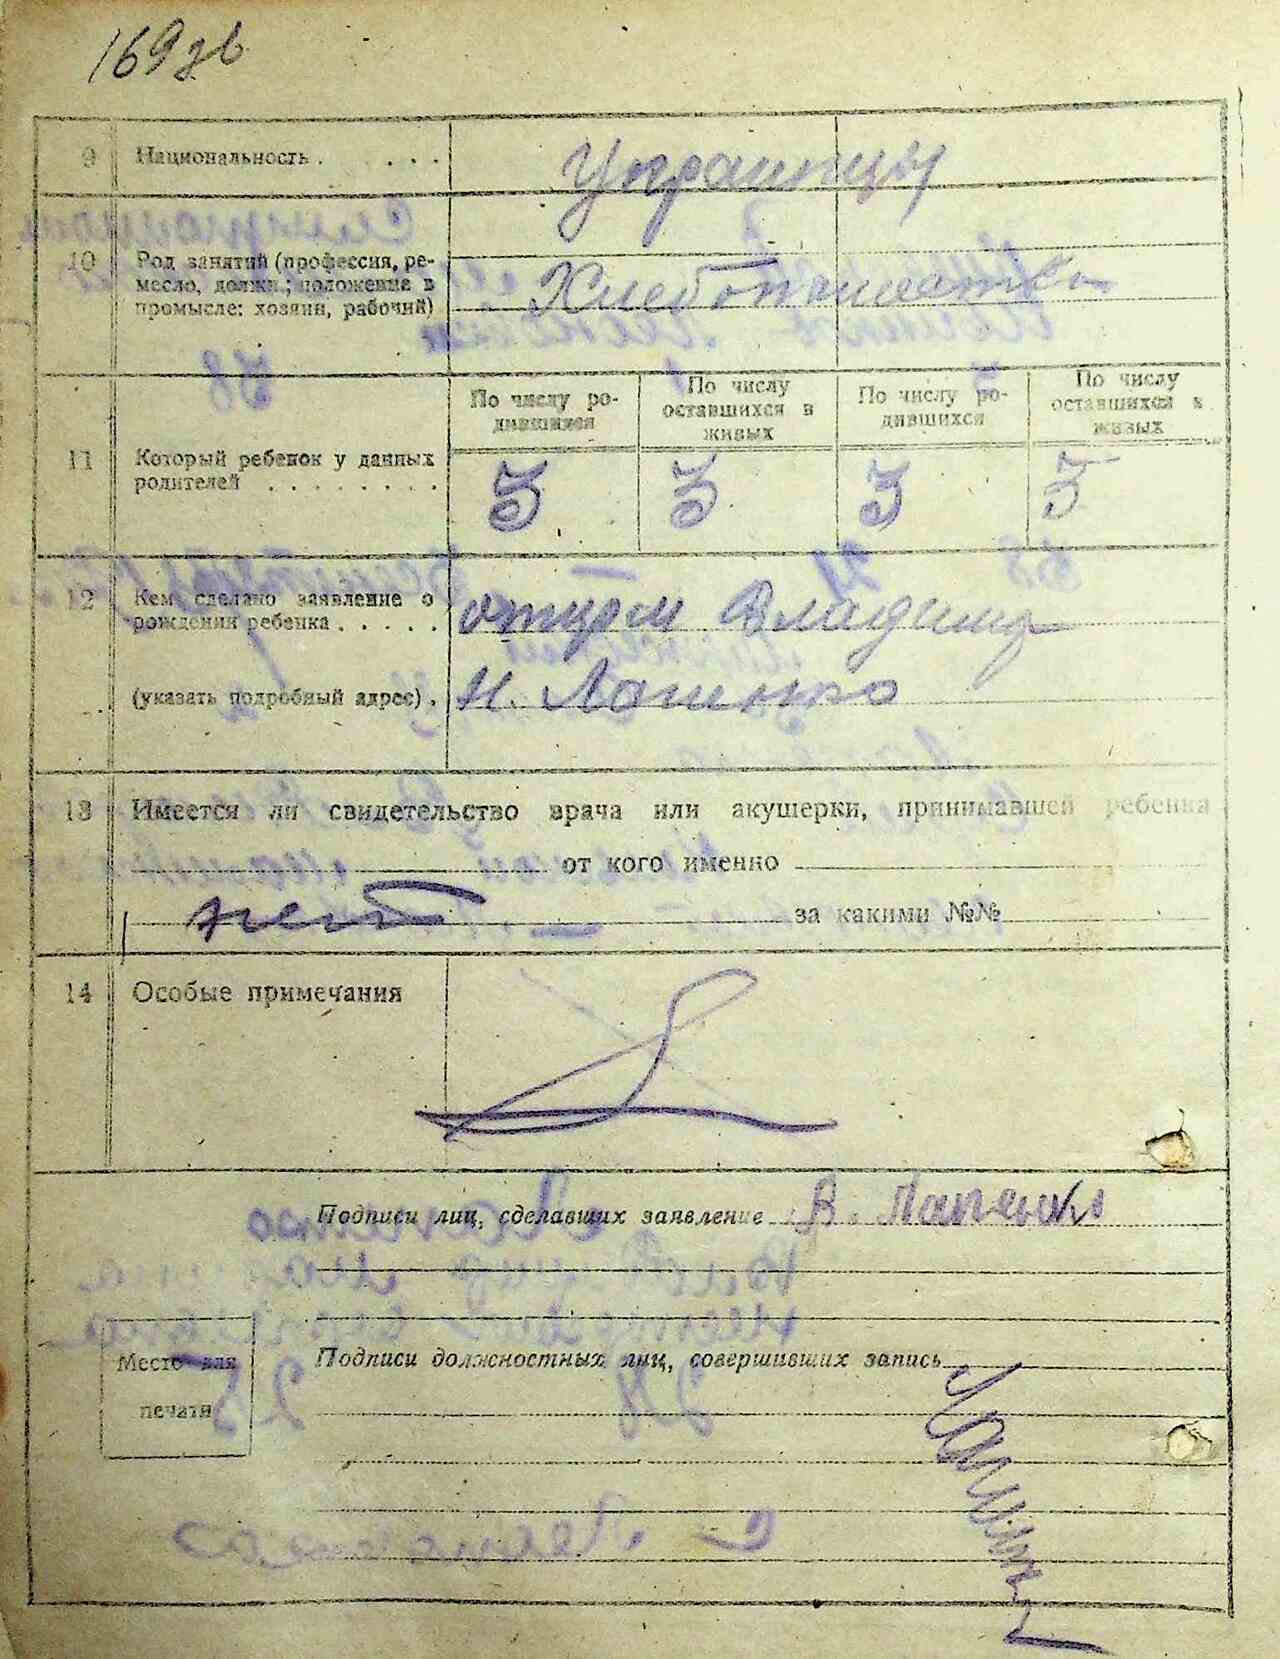 169 зв
9 Национальность . . . . . Украинцы
10 Род занятий (профессия, ре-
месло, должн.; положение в
промысле: хозяин, рабочий)
Хлебопашество
По числу ро-
дившихся
По числу
оставшихся в
живых
По числу ро-
дившихся
По числу
оставшихся в
живых
11 Который ребенок у данных
родителей . . . . . . . .
3 3 3 3
12 Кем сделано заявление о
рождении ребенка . . . . .
отцом Владимир
(указать подробный адрес) . Н. Лапенко
13 Имеется ли свидетельство врача или акушерки, принимавшей ребенка
от кого именно
нет — за какими №№
14 Особые примечания
Подписи лиц, сделавших заявление В. Лапенко
Место для
печати
Подписи должностных лиц, совершивших запись